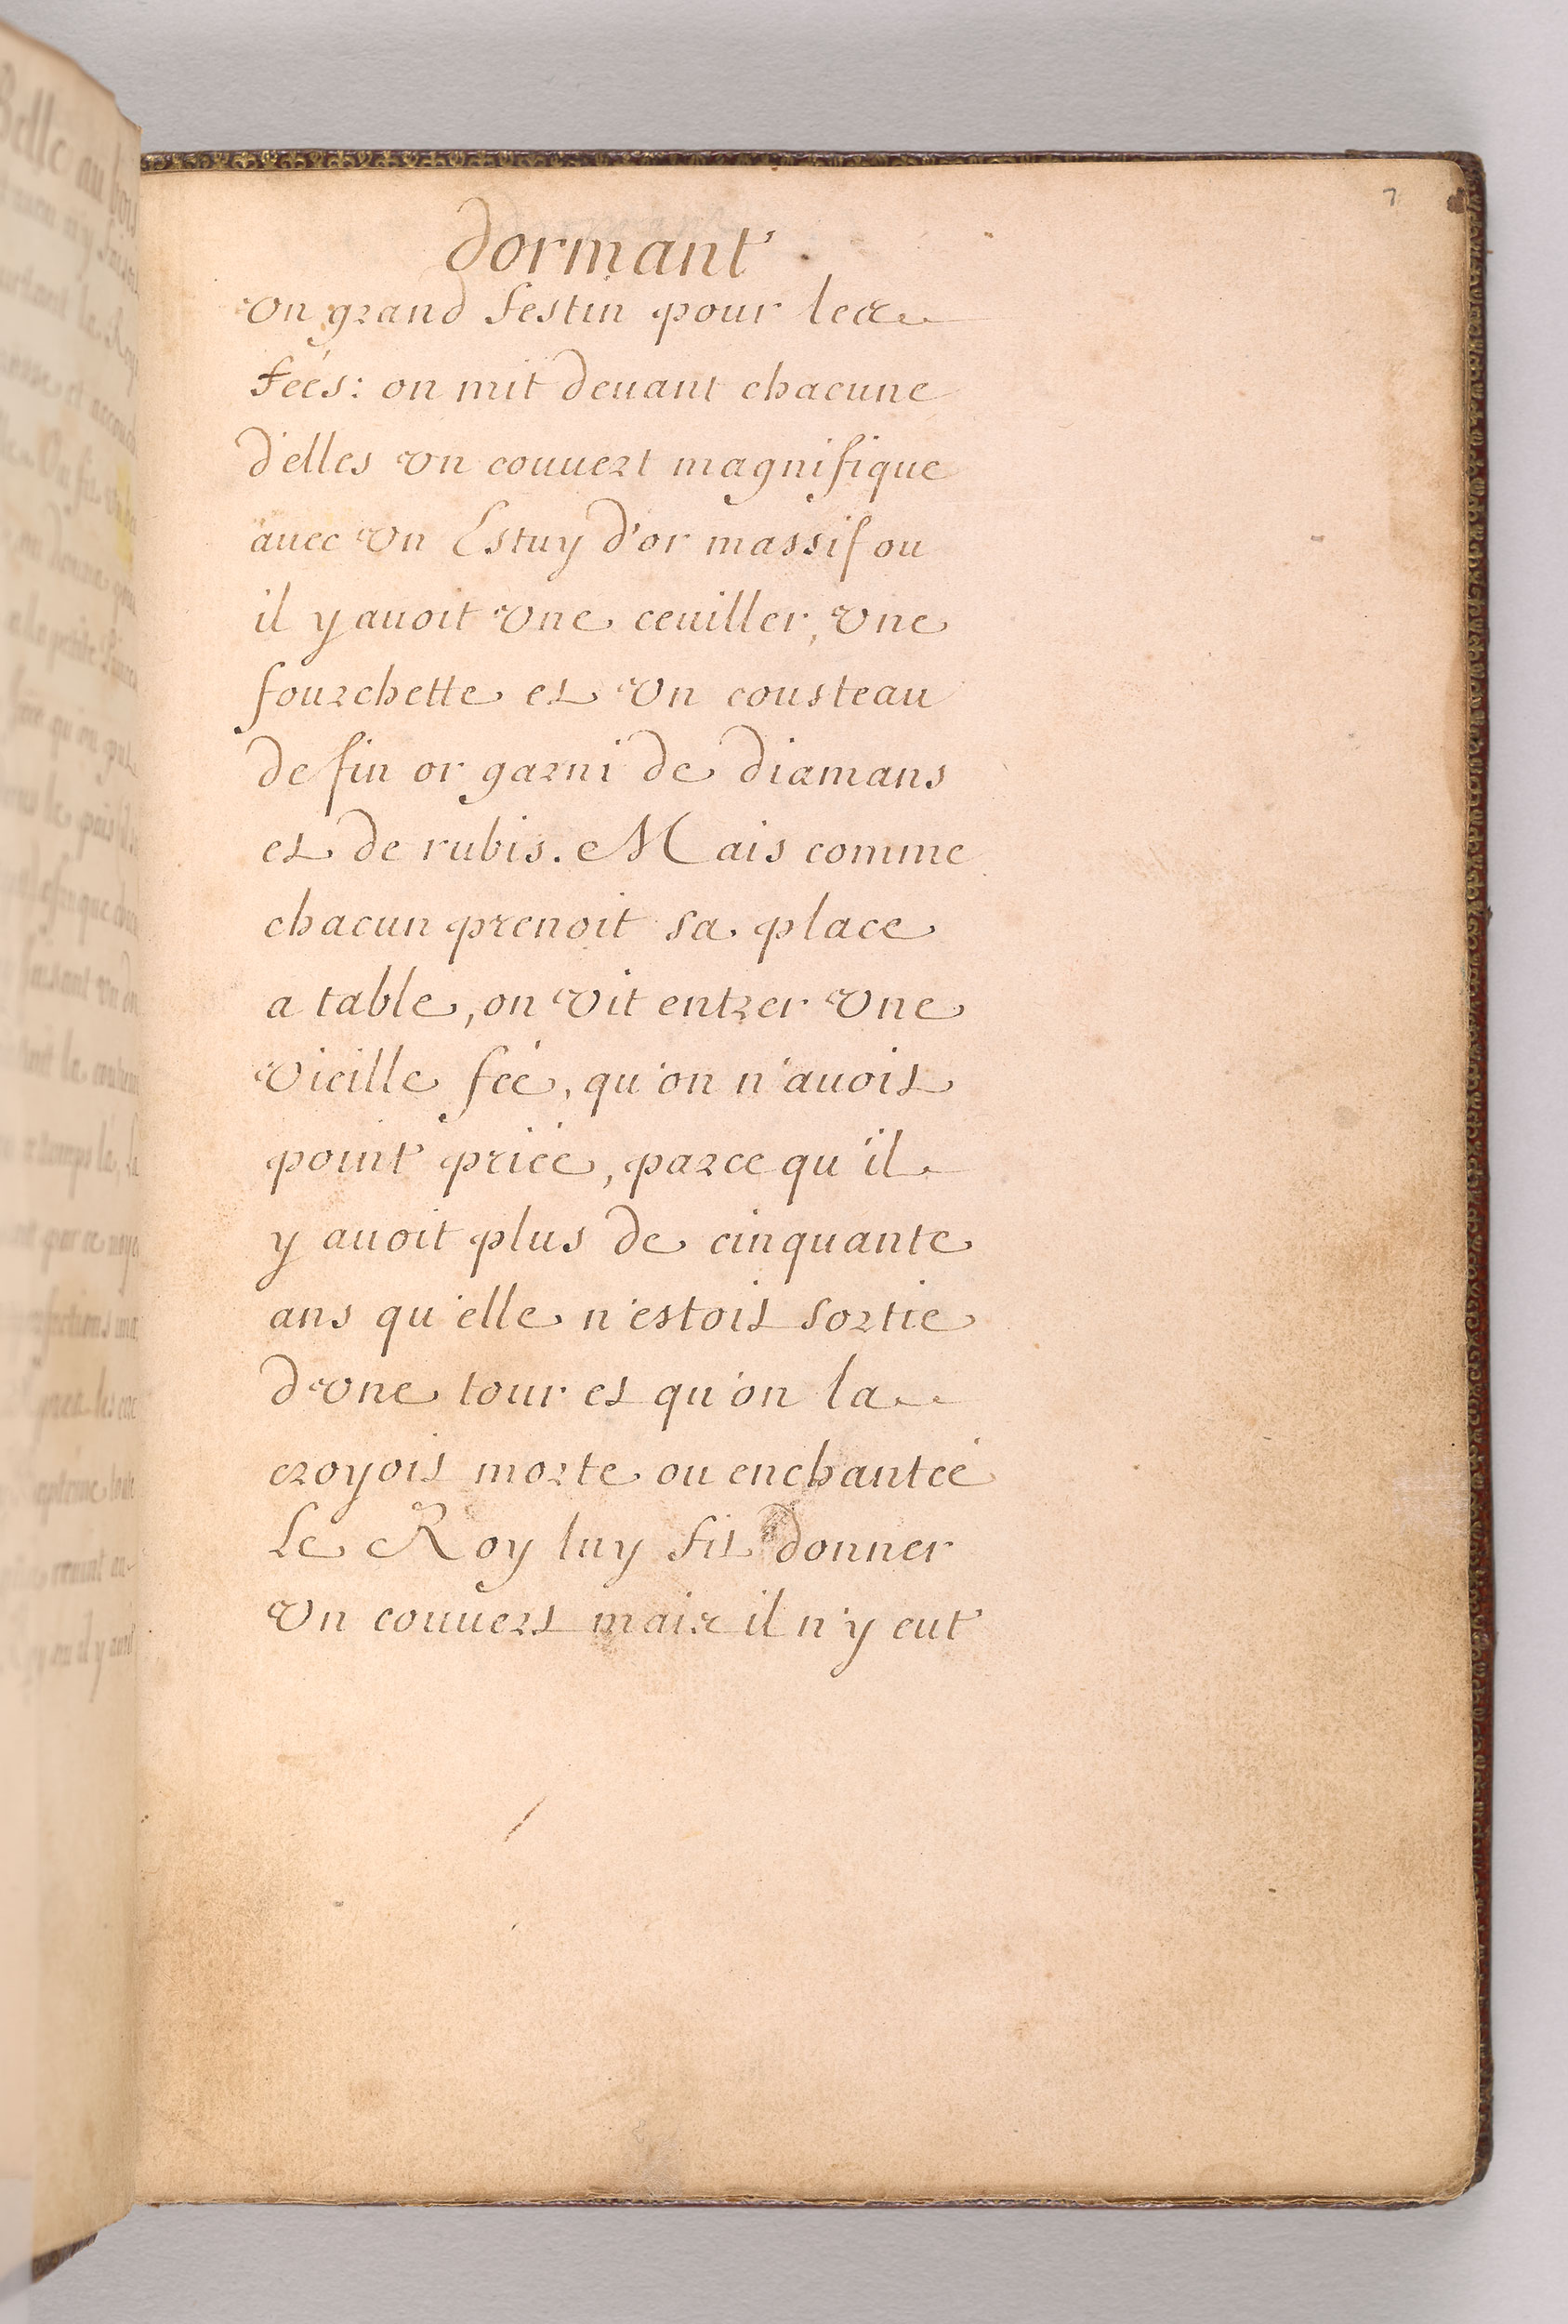 7
dormant
vn grand festin pour les
féés: on mit deuant chacune
d'elles vn couuert magnifique
auec vn Estuy d'or massif ou
il y auoit vne ceuiller, vne
fourchette et vn cousteau
de fin or garni de diamans
et de rubis. Mais comme
chacun prenoit sa place
a table, on vit entrer vne
vieille féé, qu'on n'auoit
point priéé, parce qu'il
y auoit plus de cinquante
ans qu'elle n'estoit sortie
d'vne tour et qu'on la
croyoit morte ou enchantéé
Le Roy luy fit donner
vn couuert mais il n'y eut